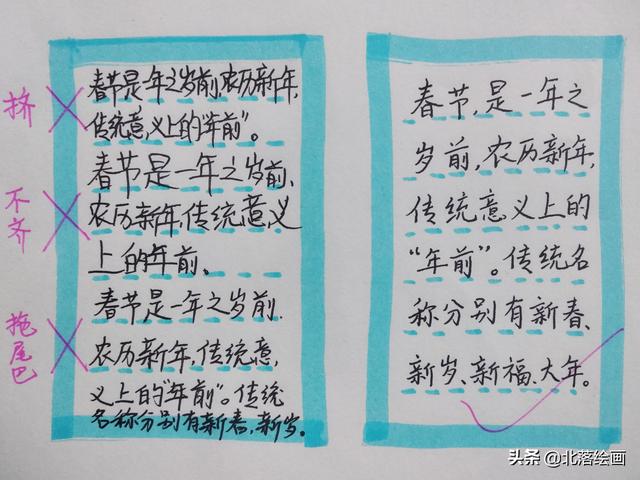 挤
春节是一年之岁前,农历新年,
传统意义上的“年前”。
不齐
春节是一年之岁前、
农历新年,传统意义
上的年前、
拖尾巴
春节是一年之岁前.
农历新年,传统意,
义上的“年前”。传统
名称分别有新春,新岁。
春节,是一年之
岁前,农历新年,
传统意义上的
“年前”。传统名
称分别有新春、
新岁、新福、大年。
头条 @北落绘画